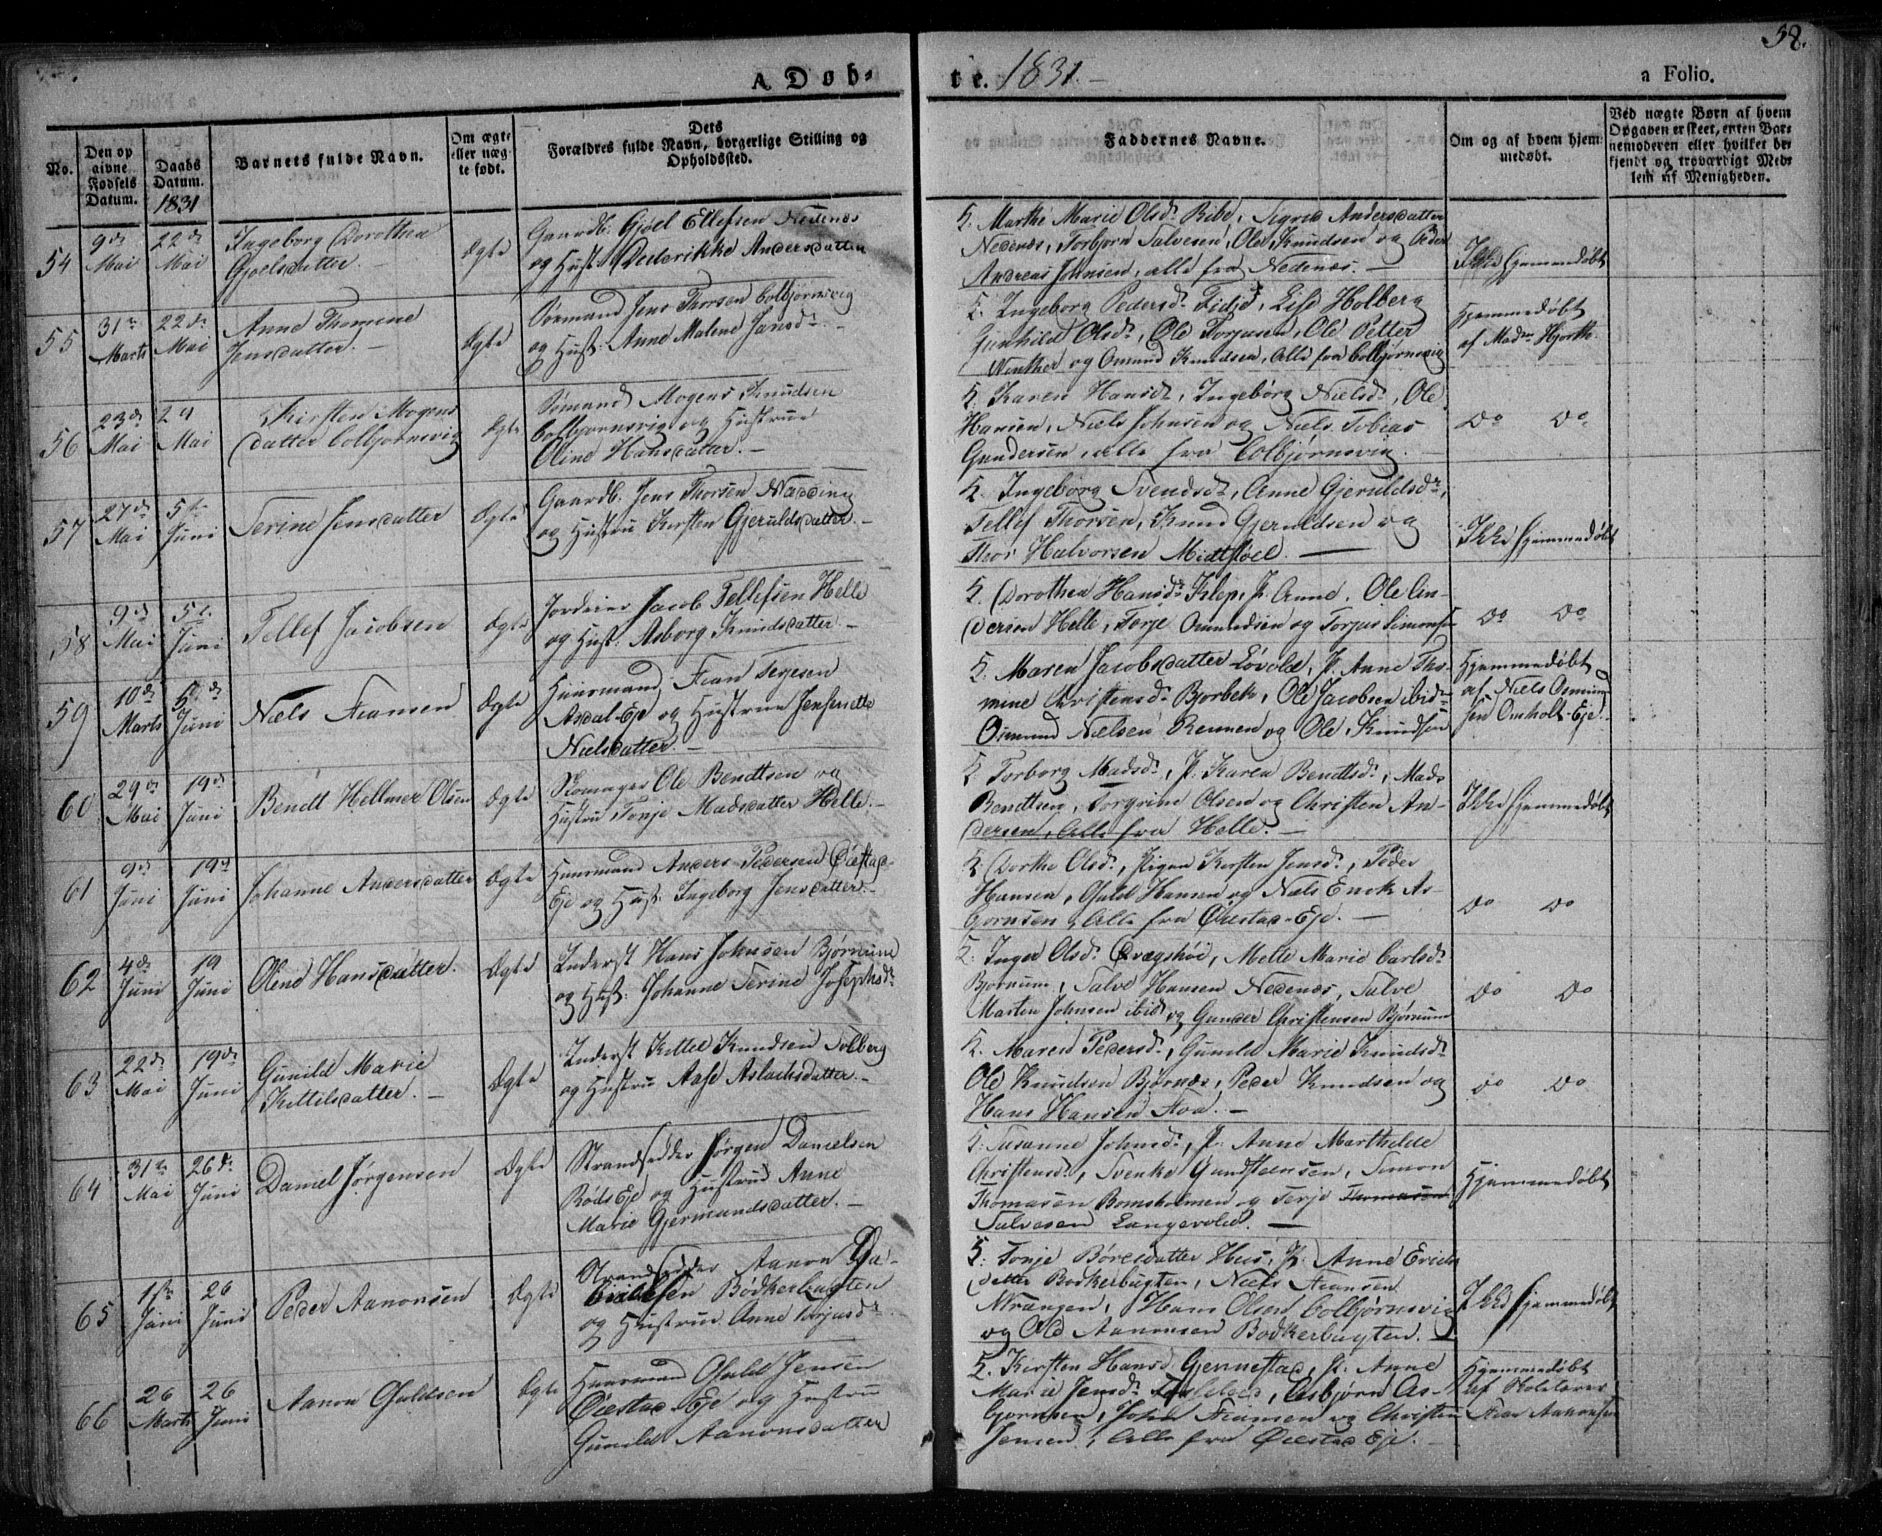 58.
A Døb-
te. 1831.-
a Folio.
No.
Den op
givne
Fødsels
Datum.
Daabs
Datum.
1831
Barnets fulde Navn.
Om ægte
eller uæg
te født.
Dets
Forældres fulde Navn, borgerlige Stilling og
Opholdssted.
Faddernes Navne.
Om og af hvem hjem-
medøbt.
Ved uægte Børn af hvem
Opgaven er skeet, enten Bar-
nemoderen eller hvilket be-
kjendt og troværdigt Med-
lem af Menigheden.
54
9de
Mai
22de
Mai
Ingeborg Dorothea
Gjoelsdatter.
Ægte
Gaardb. Gjøel Ellefsen Nedenæs
og Hust. Dederikke Andersdatter
F. Marthe Marie Olsdr. Bibe, Sigrid Andersdatter
Nedenæs, Torbjørn Salvesen, Ole Knudsen og Peder
Andreas Johnsen, alle fra Nedenæs. -
Ikke hjemmedøbt
55
31te
Marts
22de
Mai
Anne Thomine
Jensdatter. -
Ægte
Sømand Jens Thorsen Colbjørnsvig
og Hust: Anne Malene Jansdr. -
F. Ingeborg Pedersdr. Fidje, Lise Holberg
Gunhild Olsdr., Ole Torjusen, Ole Petter
Winther og Omund Knudsen, Alle fra Colbjørnsvig
Hjemmedøbt
af Madm Hjorth.
56
23de
Mai
29
Mai
Kirsten Mogens
datter Colbjørnsvig
Ægte
Sømand Mogens Knudsen
Colbjørnsvig og Hustrue
Oline Hansdatter. -
F. Karen Hansdr., Ingeborg Nielsdr., Ole
Hansen, Niels Johnsen og Niels Tobias
Gundersen, alle fra Colbjørnsvig.
Do Do
57
27de
Mai
5te
Juni
Terine Jensdatter
Ægte
Gaardb. Jens Thorsen Nædding
og Hustru Kirsten Gjeruldsdatter. -
F. Ingeborg Svendsdr., Anne Gjeruldsdr.,
Tellef Thorsen, Knud Gjeruldsen og
Thor Halvorsen Midtstoel. -
Ikke hjemmedøbt
58
9de
Mai
5te
Juni
Tellef Jacobsen
Ægte
Jordeier Jacob Tellefsen Helle
og Hust: Asborg Knudsdatter. -
F. Dorothea Hansdr. Klep, P. Anne. Ole An-
dersen Helle, Terje Omundsen og Torjus Simonsen
Do Do
59
10de
Marts
5te
Juni
Niels Fransen
Ægte
Huusmand Fran Terjesen
Asdal-Eje og Hustrue Jensene
Nielsdatter. -
F. Maren Jacobsdatter Løvold, P. Anne Tho-
mine Christensdr. Bjorbek, Ole Jacobsen ibid.
Osmund Nielsen Rennen og Ole Knudsen
Hjemmedøbt
af Niels Osmun
sen Omholt-Eje.
60
29de
Mai
19de
Juni
Bendt Hellmer Olsen
Ægte
Skomager Ole Bendtsen og
Hustru Tonje Madsdatter Helle. -
F. Torborg Madsdr., P. Karen Bendtsdr., Mads
Bendtsen, Torgrim Olsen og Christen An-
dersen, Alle fra Helle. -
Ikke hjemmedøbt
61
9de
Juni
19de
Juni
Johanne Andersdatter
Ægte
Huusmand Anders Pedersen Øiestad-
Eje og Hust. Ingeborg Jensdatter. -
F. Dorthe Olsdr., Pigen Kirsten Jensdr., Peder
Hansen, Ofuld Hansen og Niels Enok As-
bjornsen, Alle fra Øiestad-Eje. -
Do Do
62
4de
Juni
19
Juni
Olene Hansdatter.
Ægte
Inderst Hans Johnsen Bjørnum
og Hust: Johanne Terine Josephsdr.
F. Inger Olsdr. Dvegshøi, Melle Marie Carlsdr.
Bjørnum, Salve Hansen Nedenæs, Salve
Marten Johnsen ibid. og Gunder Christensen Bjørnum
Do Do
63
22de
Mai
19de
Juni
Gunild Marie
Kittilsdatter. -
Ægte
Inderst Kittel Knudsen Solberg
og Hustrue Aase Aslachsdatter. -
F. Maren Pedersdr., Gunild Marie Knudsdr.
Ole Knudsen Bjørnæs, Peder Knudsen og
Hans Hansen Floa. -
Do Do
64
31te
Mai
26de
Juni
Daniel Jørgensen
Ægte
Strandsidder Jørgen Danielsen
Røds Eje og Hustrue Anne
Marie Gjermundsdatter. -
F. Susanne Johnsdr., P. Anne Marthilde
Christensdr., Svenke Gundstensen, Simon
Thomasen Bomsholmen og Terje Thomasen
Salvesen Langevold. -
Hjemmedøbt
65
1ste
Juni
26
Juni
Peder Aanonsen
Ægte
Strandsidder Aanon
Bødkerbugten
og Hustrue Anne Torjusdr.
F. Tonje Børesdatter Hus, P. Anne Erichs
datter Bødkerbugten, Niels Fransen
Wrangen, Hans Olsen Colbjørnsvig
og Ole Aanonsen Bødkerbugten. -
Ikke hjemmedøbt
66
26
Marts
26
Juni
Aanon Ofuldsen
Ægte
Huusmand Ofuld Jensen
Øiestad-Eje og Hustrue
Gunild Aanonsdatter
F. Kirsten Hansd. Gjennestad, P. Anne
Marie Jensdr. , Asbjørn As-
bjørnsen, John Fransen og Christen
Jensen, Alle fra Øiestad Eje. -
Hjemmedøbt
af Kolstarer
Fran Aanonsen